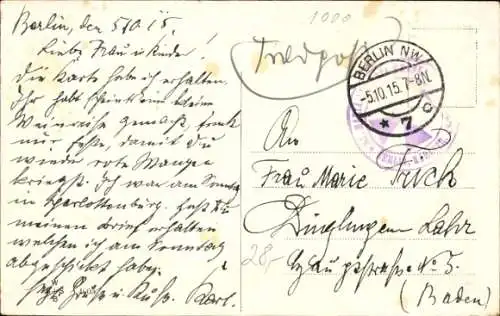 Berlin, den 5/10 15.
Liebe Frau u. Kinder!
Die Karte habe ich erhalten.
Ihr habt scheint eine kleine
Weinreise gemacht,
nur feste, damit du
wieder rote Wangen
kriegst. Ich war am Sonntag
in Charlottenburg. Hast Du
meinen Brief erhalten
welchen ich am Sonntag
abgeschickt habe.
Gruss u. Kuss. Karl.
1000
Feldpost
BERLIN NW
-5.10.15.7-8N.
* 7 c
An
Frau Marie Frick
Dinglingen Lahr
Hauptstrasse No 5.
(Baden)
28,-